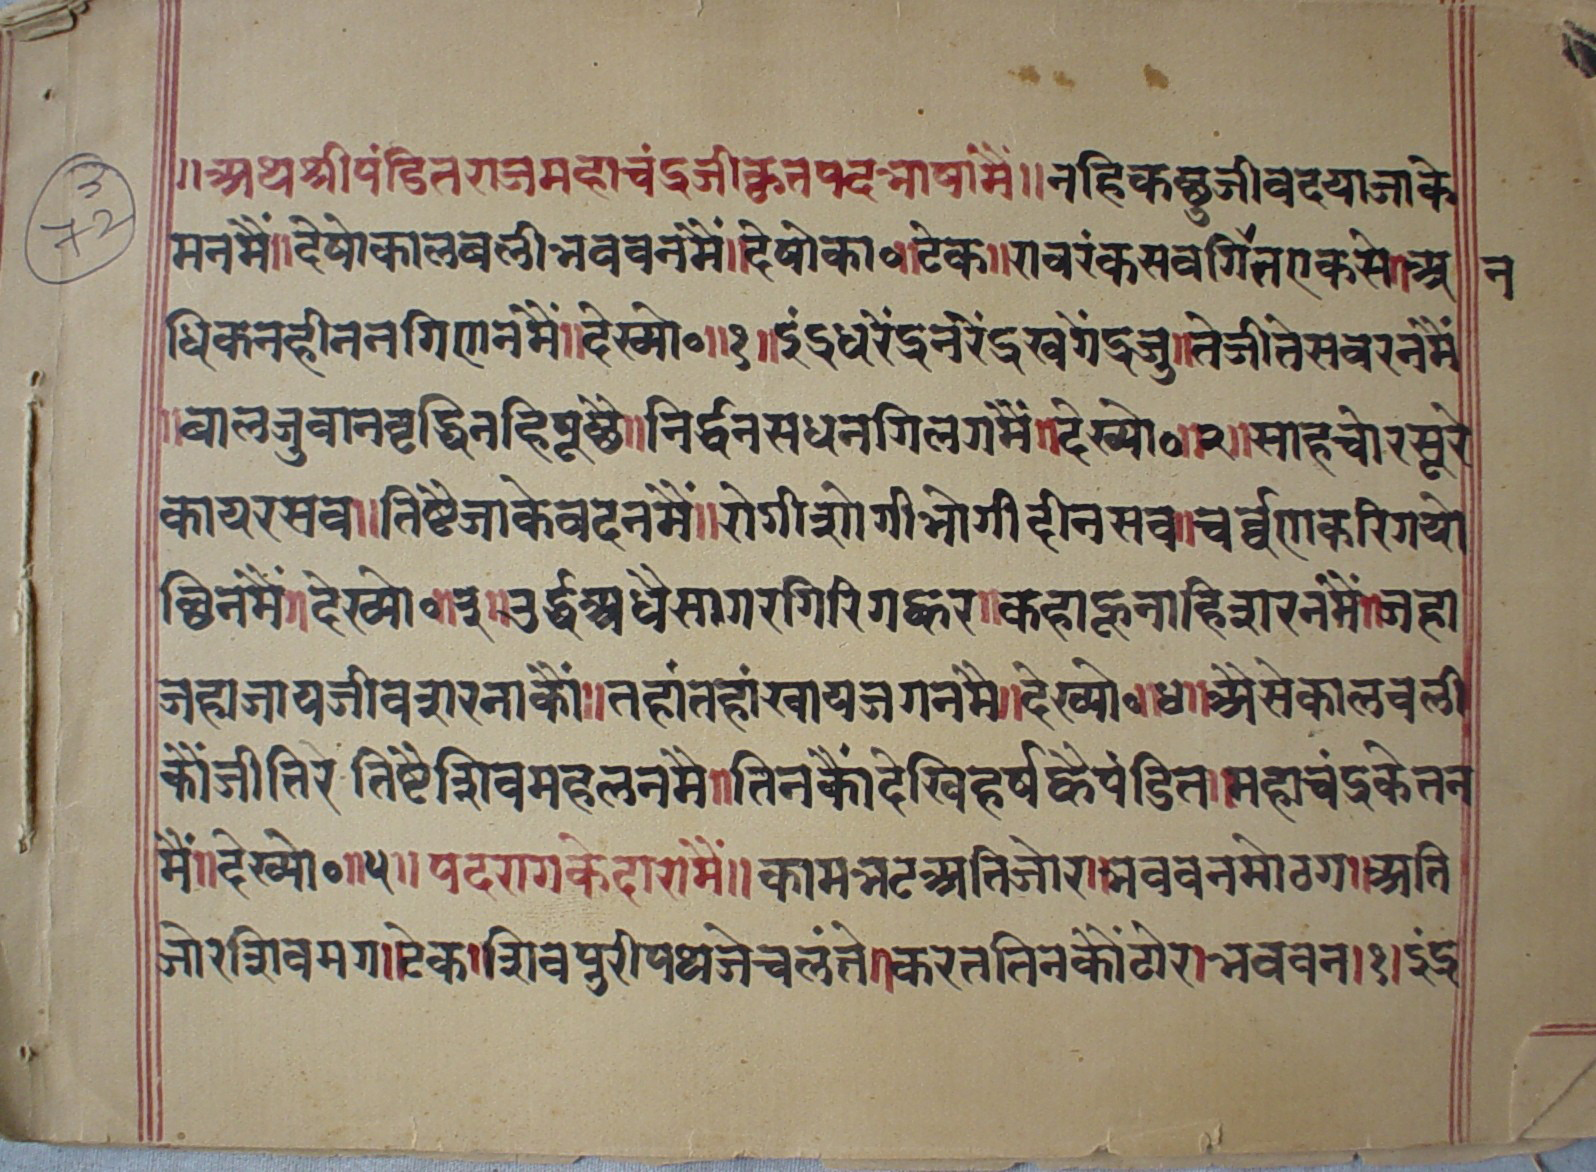 ॥अथश्रीपंडितराजमहाचंद्रजीकृतपदभाषांमैं॥नहिकछुजीवदयाजाके
मनमैं॥देषोकालबलीभवबनमैं॥देषोका०॥टेक॥रावरंकसवगिनतएकसे॥अ न
धिकनहीननगिणनमैं॥देख्यो०॥१॥इंद्रधरेंद्रनरेंद्रखगेंद्रजु॥तेजीतेसबरनमैं
॥बालजुवानवृद्धिनहिपूछै॥निर्द्धनसधनगिलगमैं॥देख्यो०॥२॥साहचोरसूरे
कायरसब॥तिष्टैजाकेवदनमैं॥रोगीशोगीभोगीदीनसब॥चर्व्वणकरिगयो
छिनमैं॥देख्यो०॥३॥उर्द्धअधैसागरगिरिगह्वर॥कहाहूनाहिशरनमैं॥जहा
जहाजायजीवशरनाकौं॥तहांतहांखायजगनमै॥देख्यो०॥४॥अैसेकालबली
कौंजीतिरे तिष्टैशिवमहलनमै॥तिनकौंदेखिहर्षह्वैपंडित॥महाचंद्रकेतन
मैं॥देख्यो०॥५॥पदरागकेदारामैं॥कामभटअतिजोर॥भवबनमोठग॥अति
जोरशिवमग।टेक।शिवपुरीपथजेचलंते॥करततिनकौंठोर।भवबन।१।इंद्र
72
3